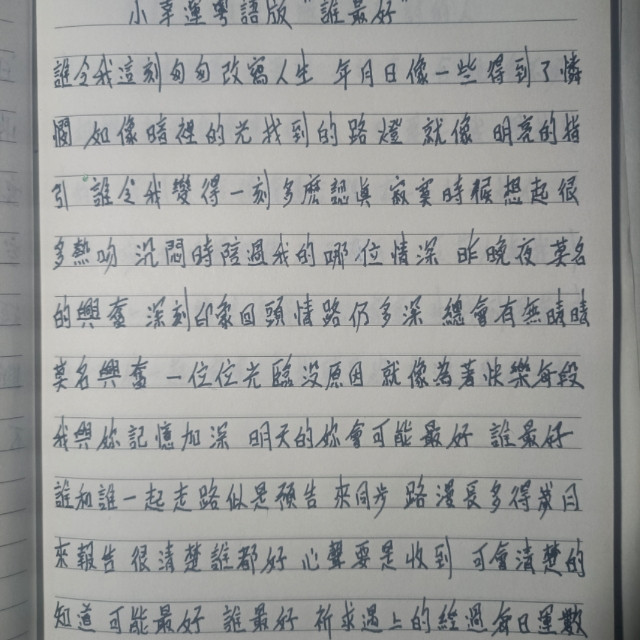 小幸運粵語版 "誰最好"
誰令我這刻匆匆改寫人生 年月日像一些得到了憐
憫 如像暗裡的光找到的路燈 就像 明亮的指
引 誰令我變得一刻多麼認真 寂寞時候想起很
多熱吻 沉悶時陪過我的哪位情深 昨晚夜 莫名
的興奮 深刻印象回頭情路仍多深 總會有無晴晴
莫名興奮 一位位光臨没原因 就像為著快樂每段
我與你記憶加深 明天的你會可能最好 誰最好
誰和誰一起走路似是預告 來同步 路漫長多得歲月
來報告 很清楚誰都好 心聲要是收到 可會清楚的
知道 可能最好 誰最好 祈求遇上的經過每日運數